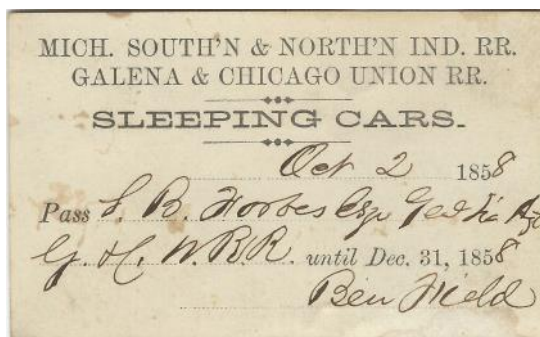 MICH. SOUTH'N & NORTH'N IND. RR.
GALENA & CHICAGO UNION RR.
SLEEPING CARS.
Oct 2 1858
Pass B. Forbes Esqr
W.R.R. until Dec. 31, 1858
Ben Field